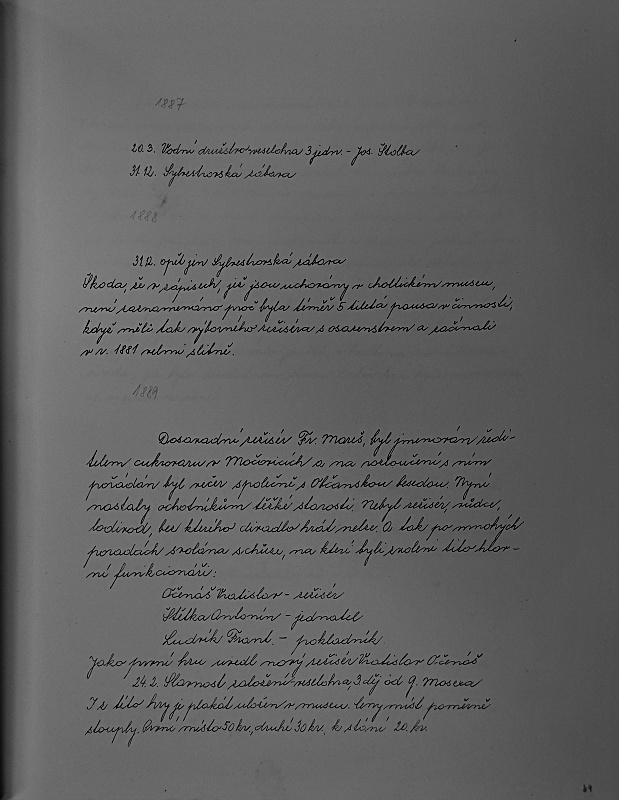 1887
20.3. Vodní družstvo-veselohra 3 jedn. - Jos. Štolba
31.12. Sylvestrovská zábava
1888
31.12. opět jen Sylvestrovská zábava
Škoda, že v zápisech, jež jsou uchovány v choltickém museu,
není zaznamenáno proč byla téměř 5 tiletá pausa v činnosti,
když měli tak výborného režiséra s osazenstvem a začínali
v r. 1881 velmi slibně.
1889
Dosavadní režisér Fr. Mareš, byl jmenován ředi-
telem cukrovaru v Močovicích a na rozloučení s ním
pořádán byl večer společně s Občanskou besedou. Nyní
nastaly ochotníkům těžké starosti. Nebyl režisér, vůdce,
lodivod, bez kterého divadlo hrát nelze. A tak po mnohých
poradách svolána schůze, na které byli zvoleni tito hlav-
ní funkcionáři:
Očenáš Vratislav - režisér
Štětka Antonín - jednatel
Ludvík Frant. - pokladník.
Jako první hru uvedl nový režisér Vratislav Očenáš
24.2. Slavnost založení-veselohra, 3 děj od G. Mosera
I z této hry je plakát uložen v museu. Ceny míst poměrně
stouply. První místo 50 kr, druhé 30 kr, k stání 20 kr.